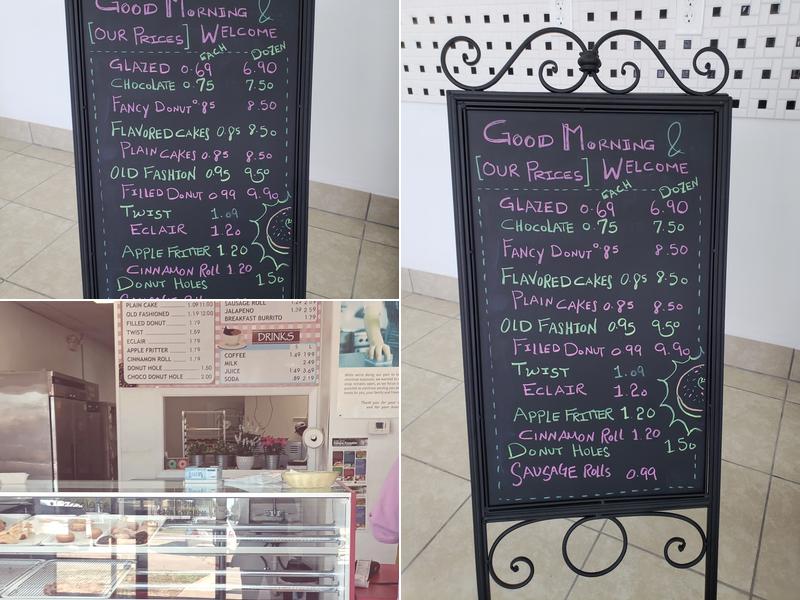 Good Morning &
[OUR PRICES] WELCOME
EACH DOZEN
GLAZED 0.69 6.90
CHOCOLATE 0.75 7.50
FANCY DONUT 0.85 8.50
FLAVORED CAKES 0.85 8.50
PLAIN CAKES 0.85 8.50
OLD FASHION 0.95 9.50
FILLED DONUT 0.99 9.90
TWIST 1.09
ECLAIR 1.20
APPLE FRITTER 1.20
CINNAMON ROLL 1.20
DONUT HOLES 1.50
PLAIN CAKE 1.09 11.00
OLD FASHIONED 1.19 12.00
FILLED DONUT 1.19
TWIST 1.59
ECLAIR 1.79
APPLE FRITTER 1.79
CINNAMON ROLL 1.79
DONUT HOLE 1.50
CHOCO DONUT HOLE 2.00
SAUSAGE ROLL
JALAPENO 1.39 2.59
BREAKFAST BURRITO 1.79
DRINKS
S L
COFFEE 1.49 1.99
MILK 2.49
JUICE 1.49 3.69
SODA .89 2.19
Good Morning &
[OUR PRICES] WELCOME
EACH DOZEN
GLAZED 0.69 6.90
CHOCOLATE 0.75 7.50
FANCY DONUT 0.85 8.50
FLAVORED CAKES 0.85 8.50
PLAIN CAKES 0.85 8.50
OLD FASHION 0.95 9.50
FILLED DONUT 0.99 9.90
TWIST 1.09
ECLAIR 1.20
APPLE FRITTER 1.20
CINNAMON Roll 1.20
DONUT HOLES 1.50
SAUSAGE Rolls 0.99